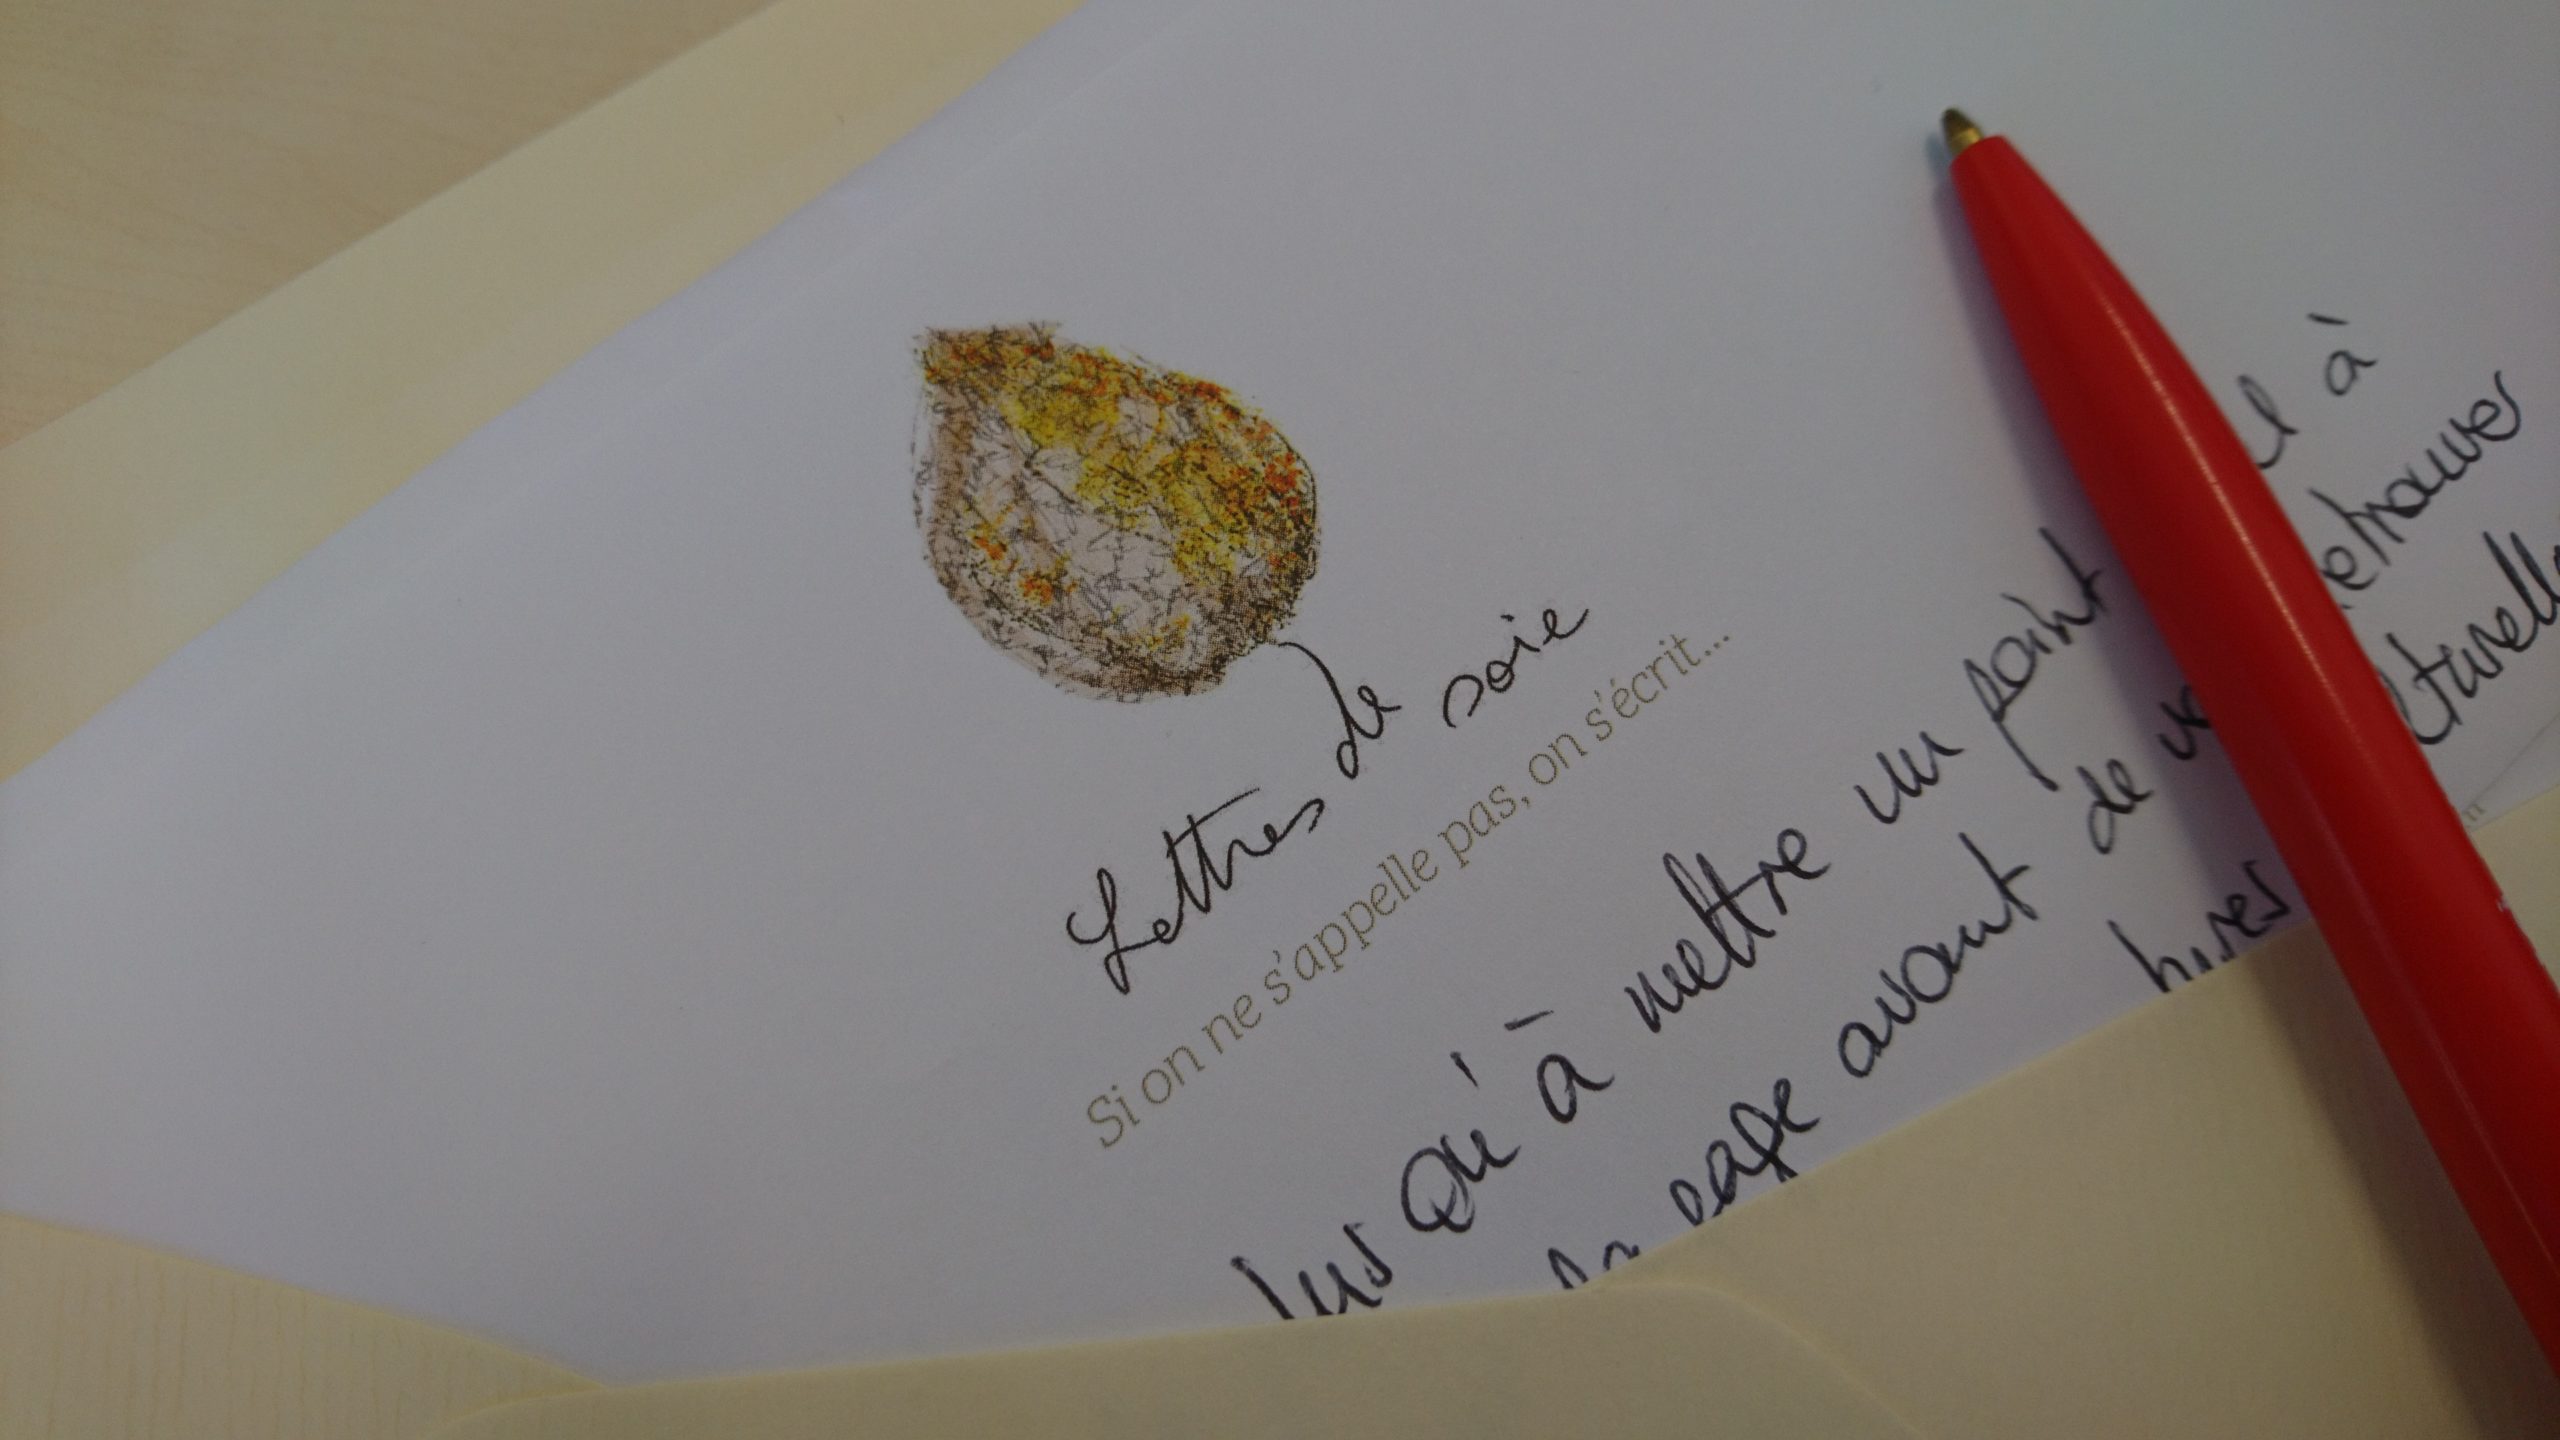 Lettres de soie
Si on ne s'appelle pas, on s'écrit...
lus qu'à mettre un point à
page avant de retrouver